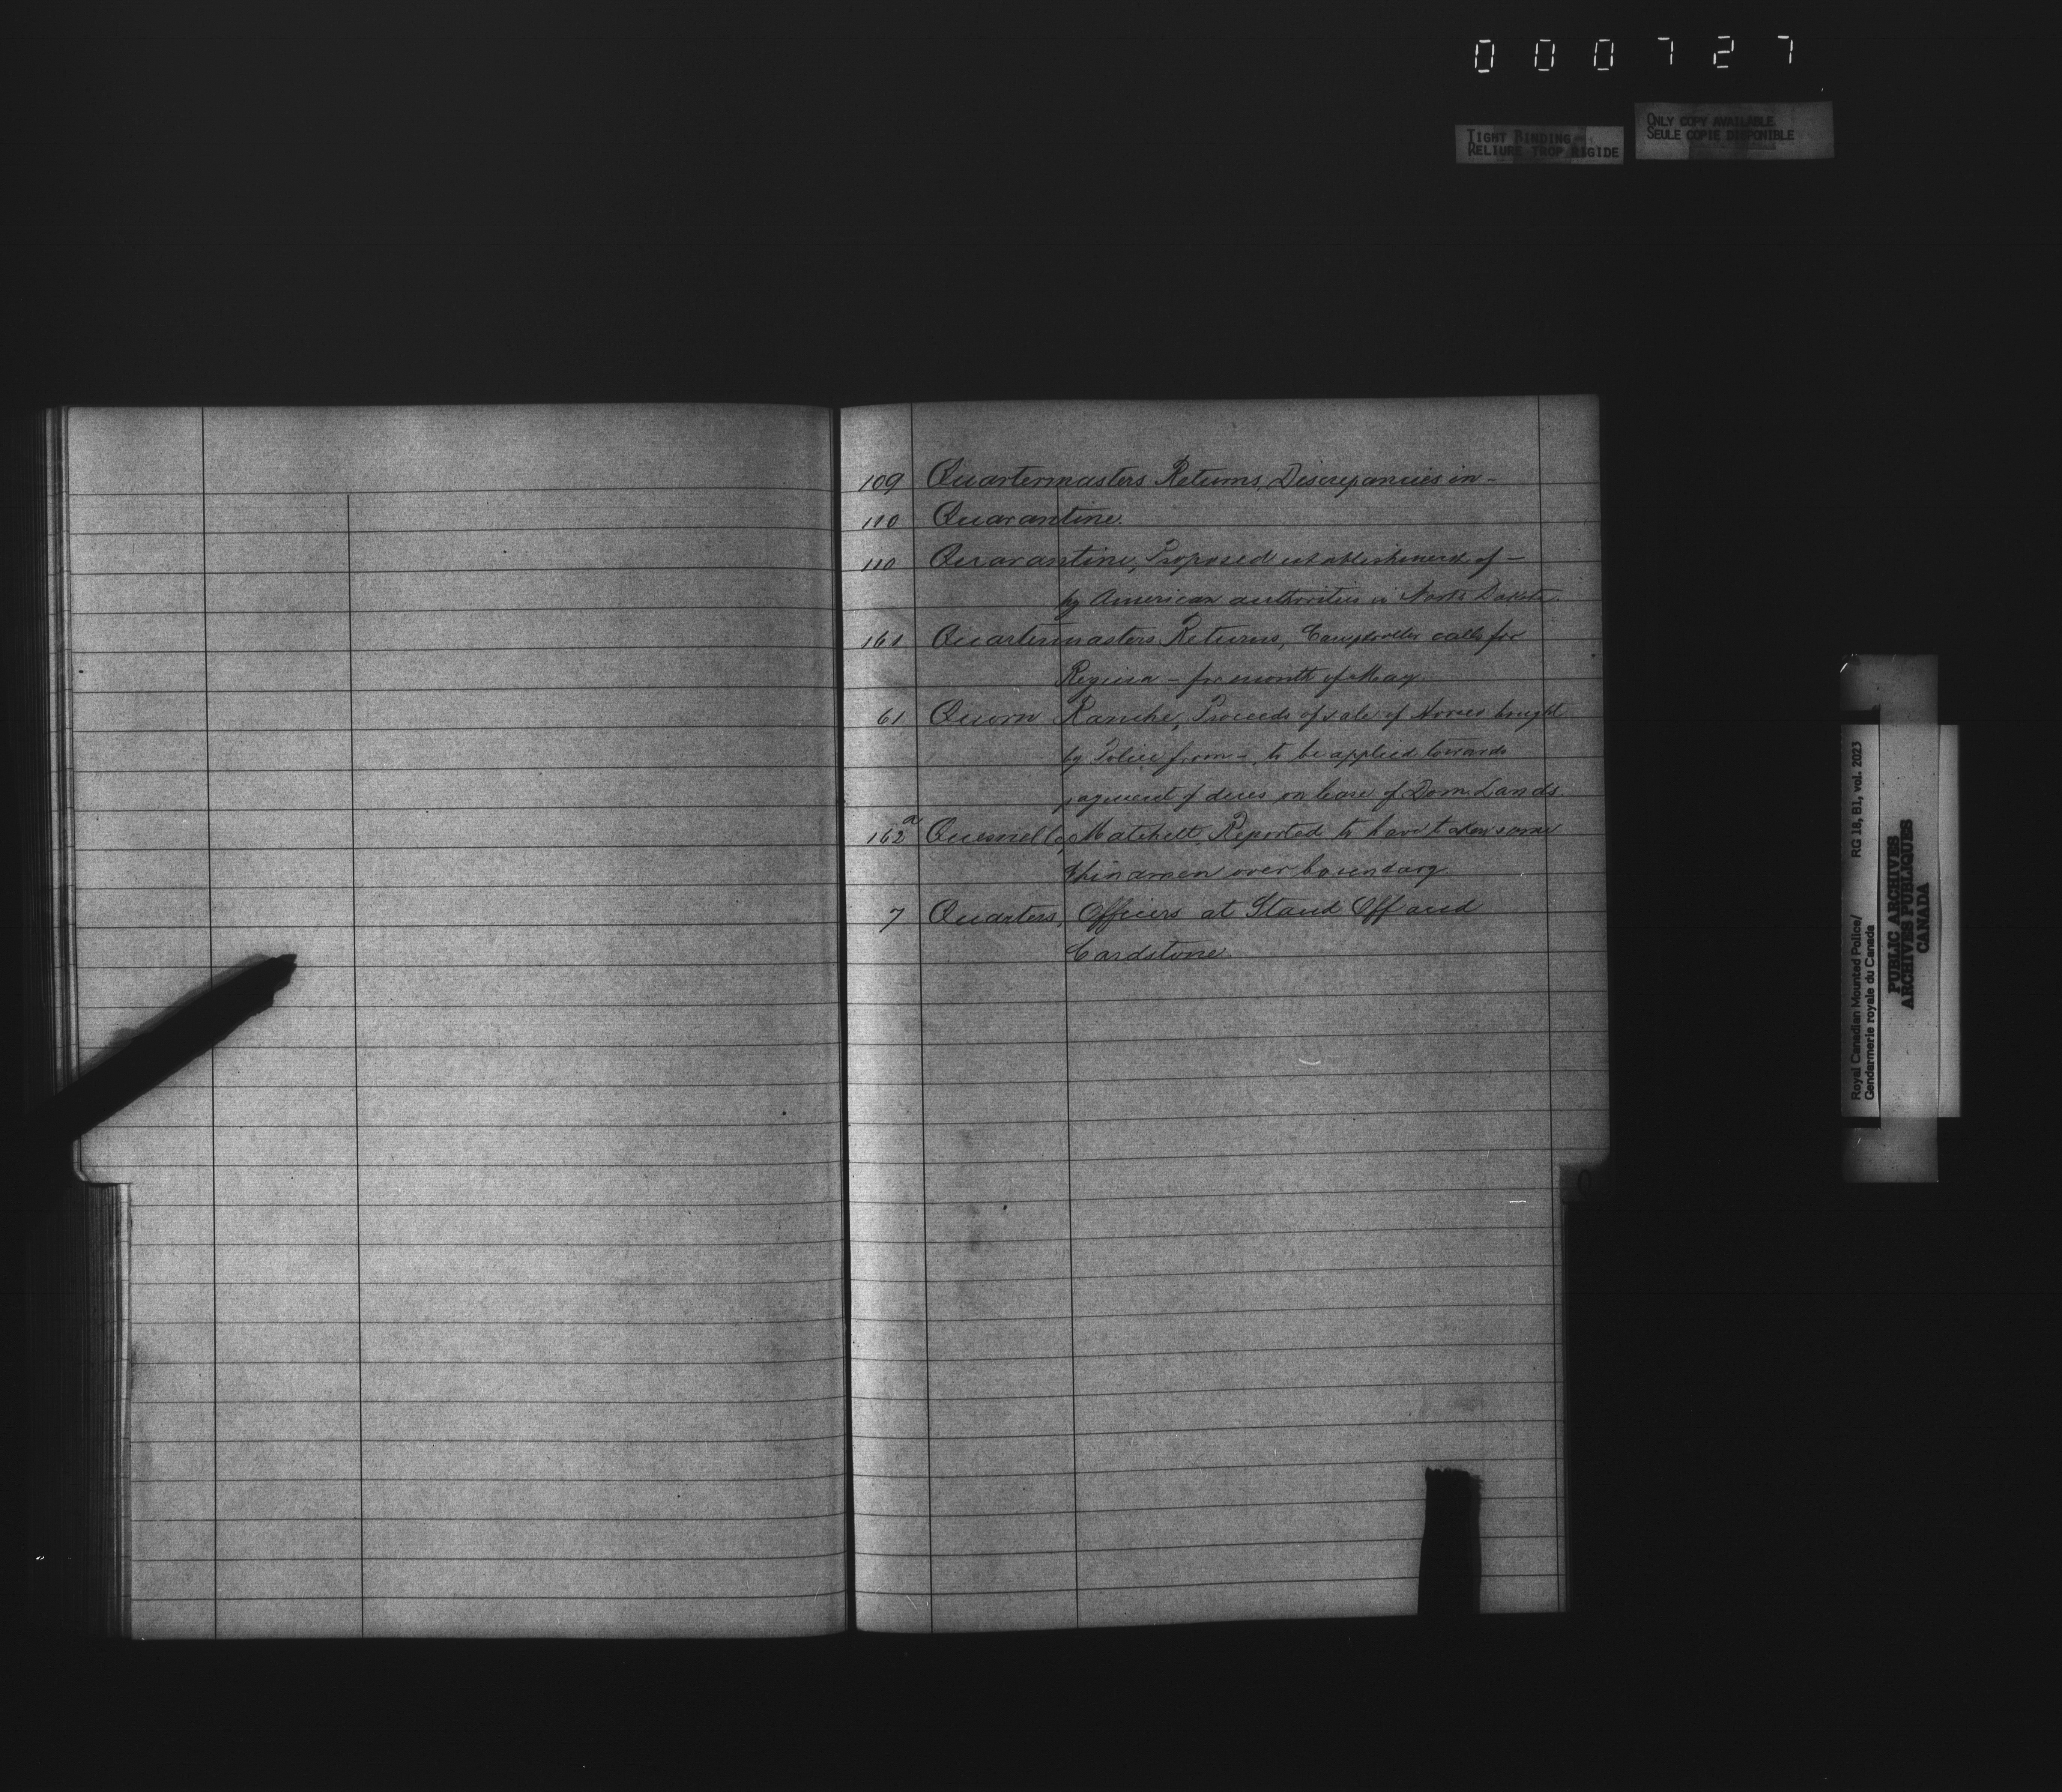 000727
TIGHT BINDING
RELIURE TROP RIGIDE
ONLY COPY AVAILABLE
SEULE COPIE DISPONIBLE
109 Quartermasters Returns, Discrepancies in -
110 Quarantine.
110 Quarantine, Proposed establishment of -
by American authorities in North Dakota.
161 Quartermasters Returns, Comptroller calls for
Regina - for month of May
61 Quorn Ranche, Proceeds of sale of Horses bought
by Police from -, to be applied towards
payment of dues on lease of Dom. Lands.
162a Quesnelle, Reported to have taken some
Chinamen over boundary
7 Quarters, Officers at Stand Off and
Cardstone.
Q
Royal Canadian Mounted Police/
Gendarmerie royale du Canada
RG 18, B1, vol. 2023
PUBLIC ARCHIVES
ARCHIVES PUBLIQUES
CANADA